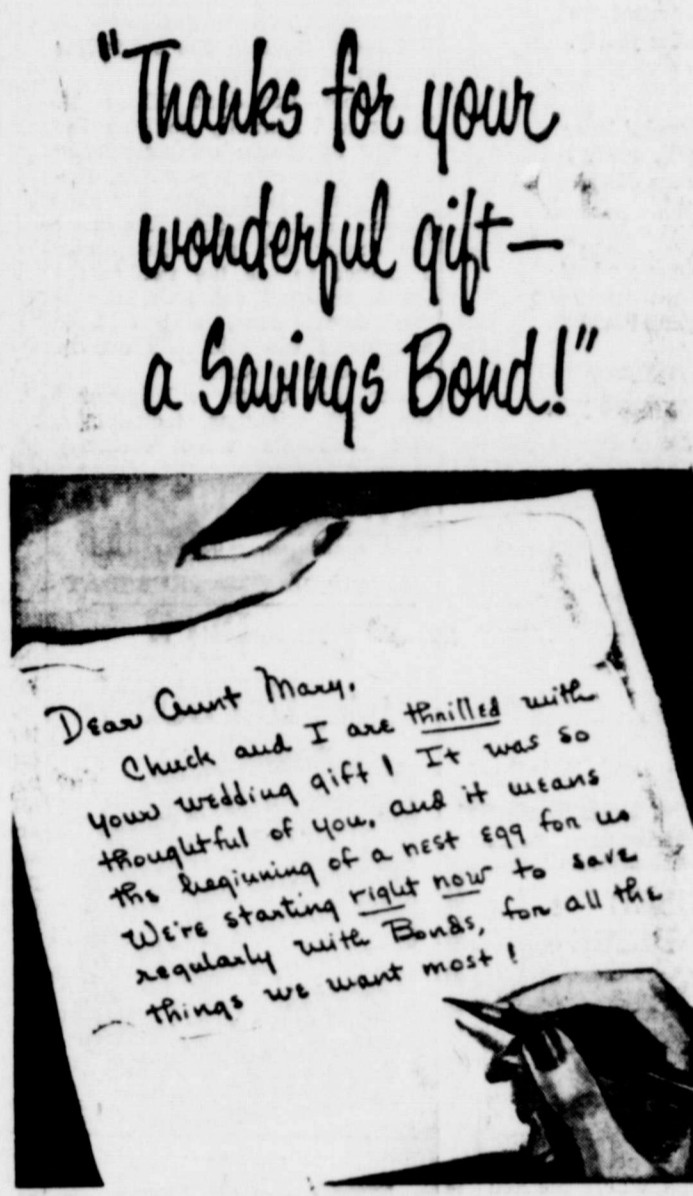 "Thanks for your
wonderful gift—
a Savings Bond!"
Dear Aunt Mary,
Chuck and I are thrilled with
your wedding gift! It was so
thoughtful of you, and it means
the beginning of a nest egg for us
We're starting right now to save
regularly with Bonds, for all the
things we want most!